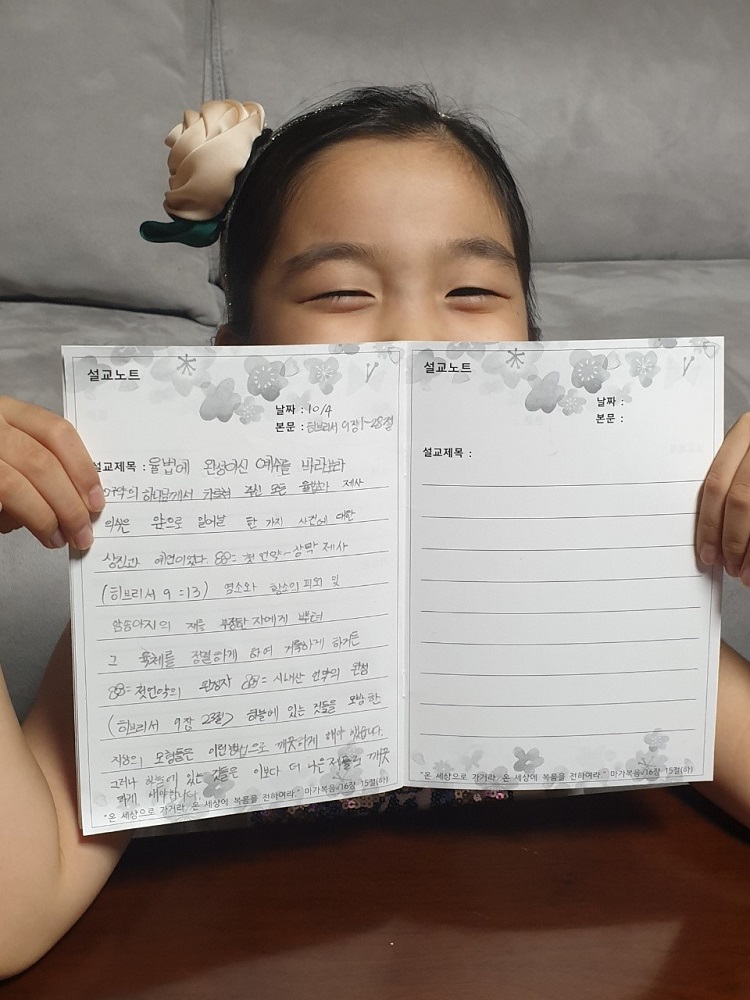 설교노트
날짜 : 10/4
본문 : 히브리서 9장1~28절
설교제목 : 율법에 완성이신 예수를 바라보라
구약의 하나님께서 가르쳐 주신 모든 율법과 제사
의식은 앞으로 일어날 한 가지 사건에 대한
상징과 예언이었다. 옛 언약- 장막 제사
(히브리서 9:13) 염소와 황소의 피와 및
암송아지의 재를 부정한 자에게 뿌려
그 육체를 정결하게 하여 거룩하게 하거든
첫언약의 완성자 시내산 언약의 완성
(히브리서 9장 23절) 하늘에 있는 것들을 모방한
지상의 모형들은 이런 방법으로 깨끗하게 해야 했습니다.
그러나 하늘에 있는 것들은 이보다 더 나은 제물로 깨끗
하게 해야 합니다.
"온 세상으로 가거라. 온 세상에 복음을 전하여라." 마가복음 16장 15절(하)
설교노트
날짜 :
본문 :
설교제목 :
"온 세상으로 가거라. 온 세상에 복음을 전하여라." 마가복음 16장 15절(하)